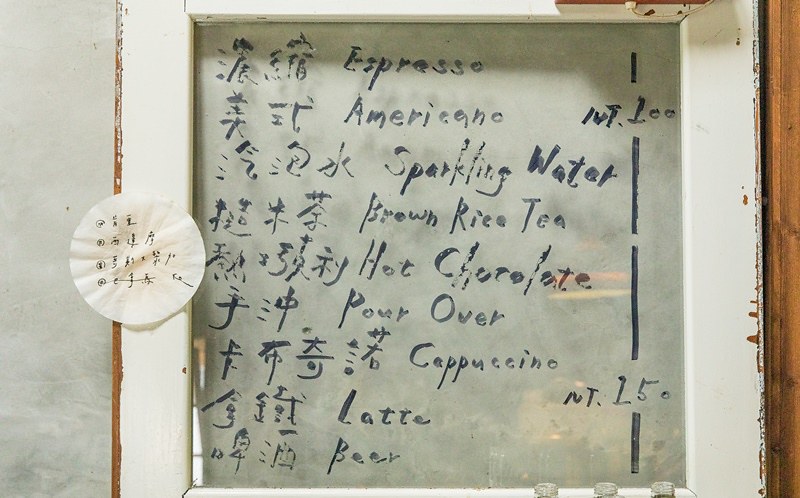 濃縮 Espresso
美式 Americano
NT. 100
汽泡水 Sparkling Water
糙米茶 Brown Rice Tea
熱巧克利 Hot Chocolate
手沖 Pour Over
卡布奇諾 Cappuccino
NT. 150
拿鐵 Latte
啤酒 Beer